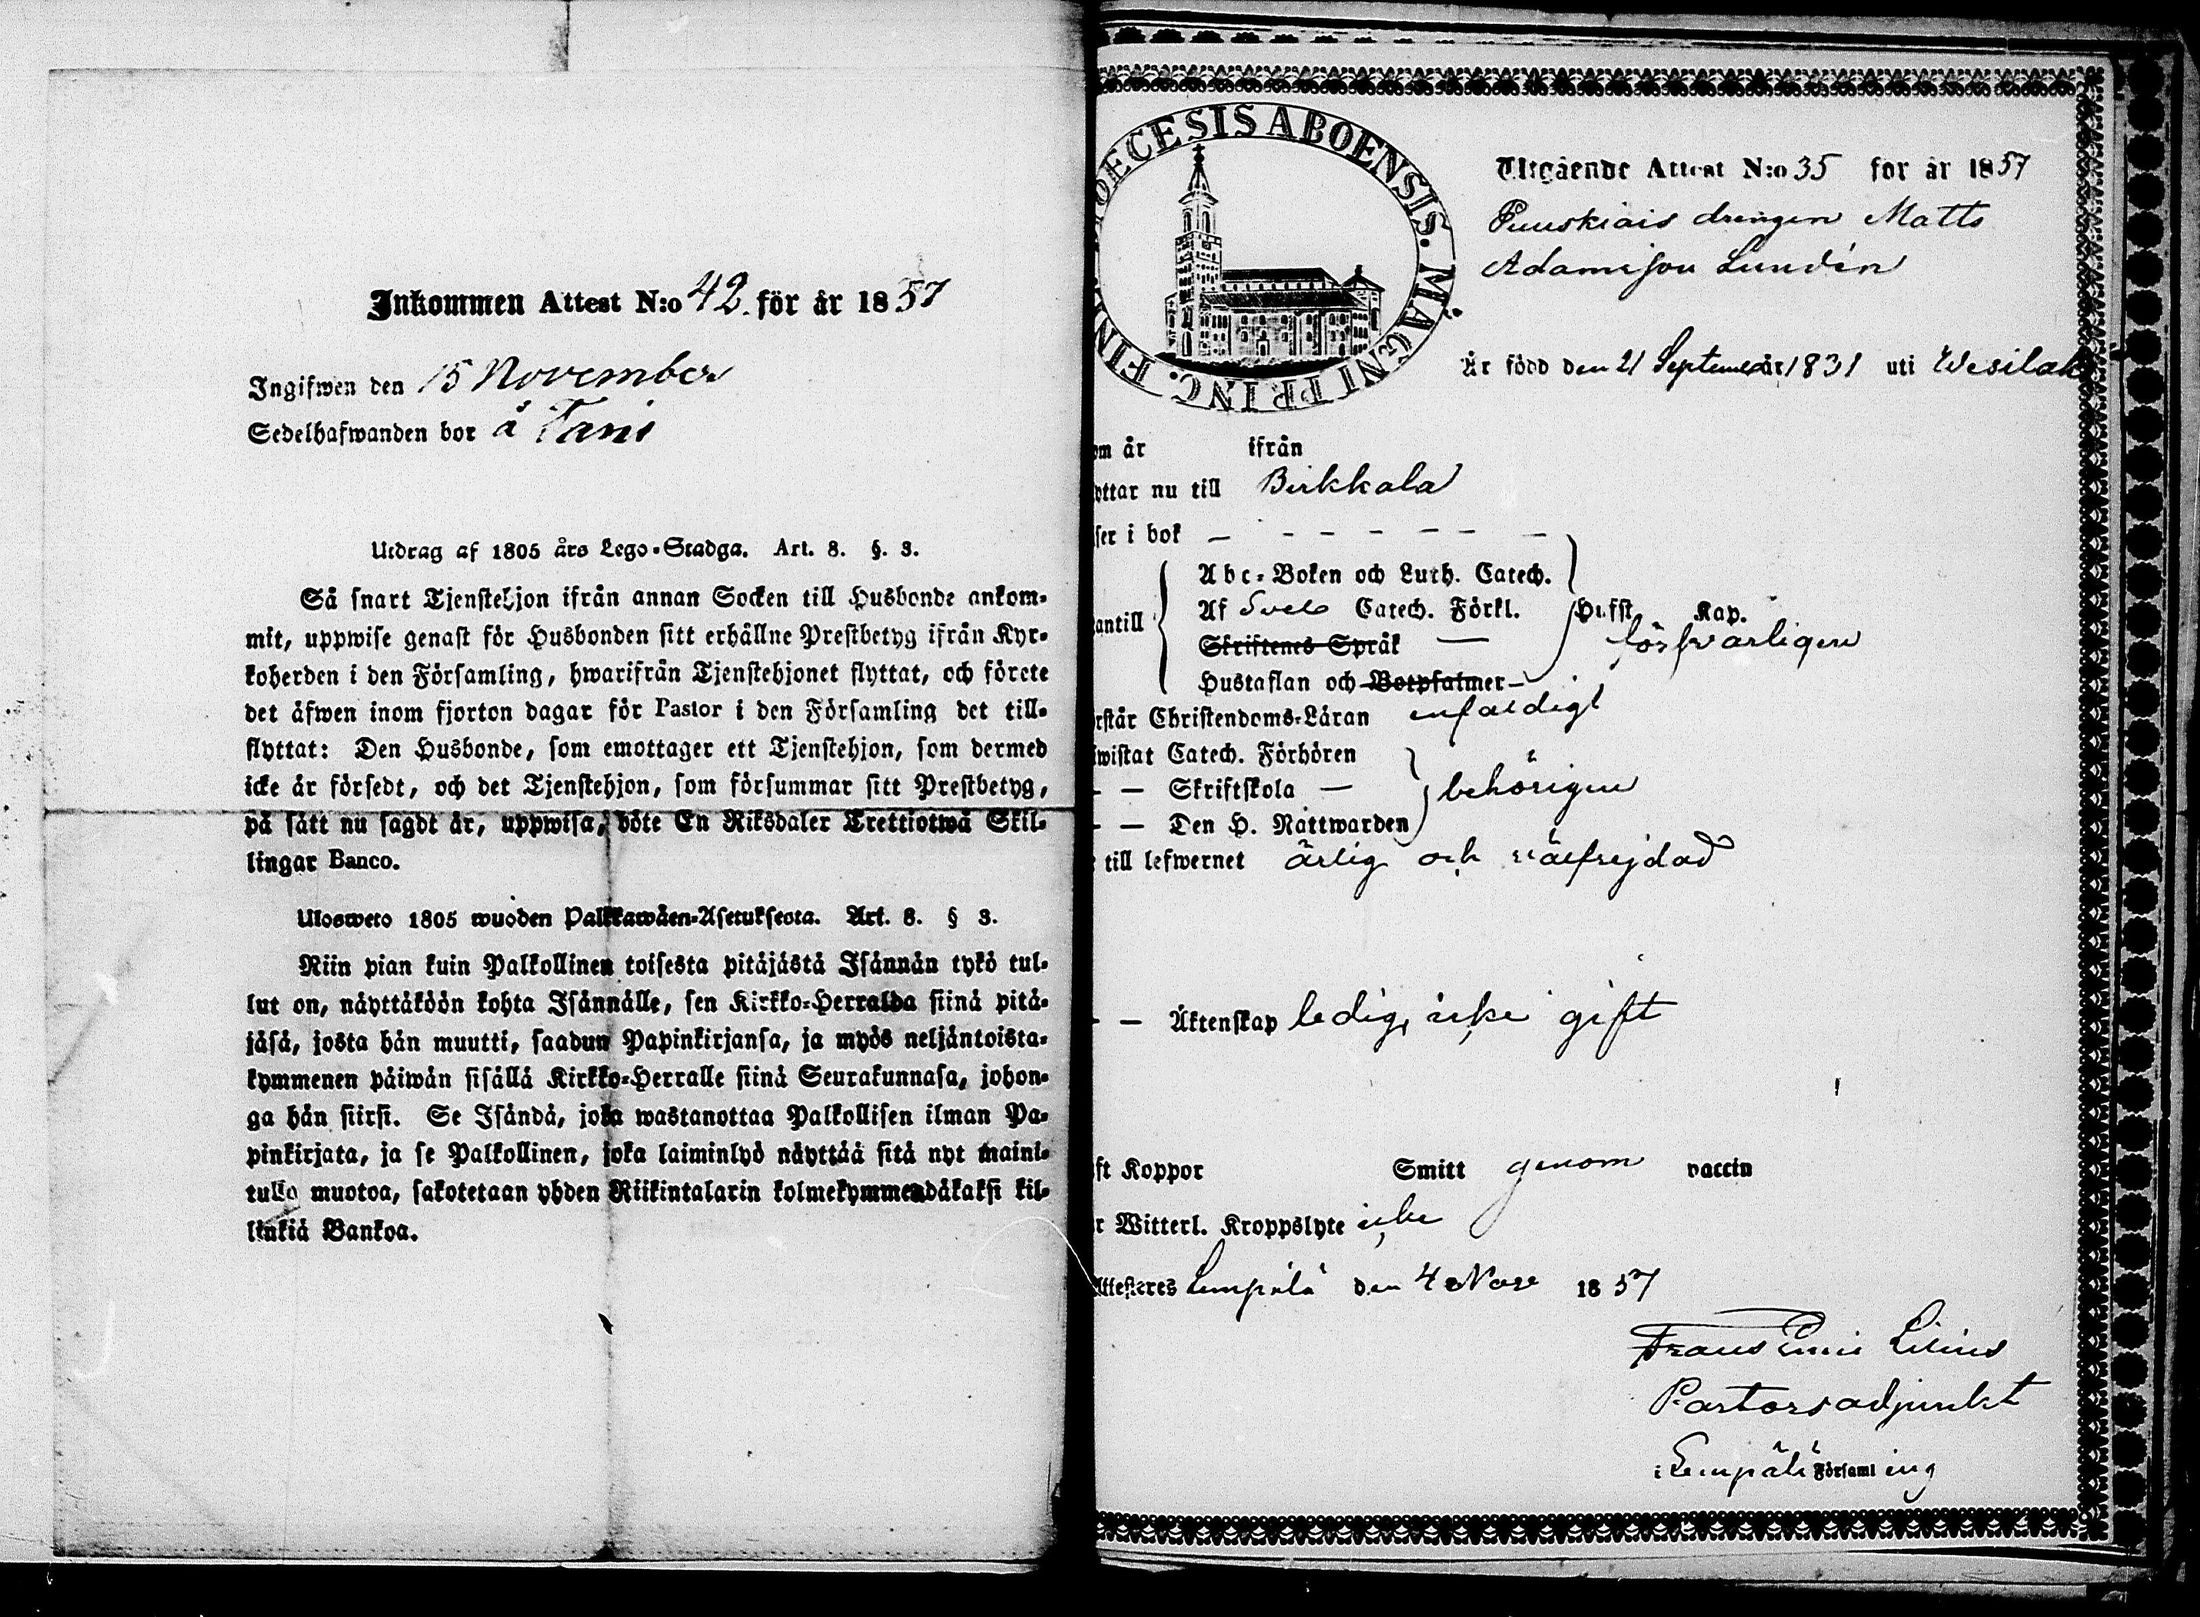 Inkommen Attest N:o 42. för år 1857
Ingifwen den 15 November
Sedelhafwanden bor å Tani
Utdrag af 1805 års Lego-Stadga. Art. 8. §. 3.
Så snart Tjenstehjon ifrån annan Socken till Husbonde ankom-
mit, uppwise genast för Husbonden sitt erhållne Prestbetyg ifrån Kyr-
koherden i den Församling, hwarifrån Tjenstehjonet flyttat, och förete
det äfwen inom fjorton dagar för Pastor i den Församling det till-
flyttat: Den Husbonde, som emottager ett Tjenstehjon, som dermed
icke är försedt, och det Tjenstehjon, som försummar sitt Prestbetyg,
på sätt nu sagdt är, uppwisa, böte En Riksdaler Trettiotwå Skil-
lingar Banco.
Ulosweto 1805 wuoden Palkkawäen-Asetuksesta. Art. 8. § 3.
Niin pian kuin Palkollinen toisesta pitäjästä Isännän tykö tul-
lut on, näyttäköön kohta Isännälle, sen Kirkko-Herralda siinä pitä-
jäsä, josta hän muutti, saadun Papinkirjansa, ja myös neljäntoista-
kymmenen päiwän sisällä Kirkko-Herralle siinä Seurakunnasa, johon-
ga hän siirsi. Se Isändä, joka wastanottaa Palkollisen ilman Pa-
pinkirjata, ja se Palkollinen, joka laiminlyö näyttää sitä nyt maini-
tulla muotoa, sakotetaan yhden Riikintalarin kolmekymmendäkaksi kil-
linkiä Bankoa.
OECESIS ABOENSIS. MAGNI PRINC. FIN
Utgående Attest N:o 35 for år 1857
drengen Matts
Adamsson Lundén
Är född den 21 September år 1831 uti Wesilak
om år ifrån
yttar nu till Birkkala
äser i bok — – – – – – –
antill
Abc-Boken och Luth. Catech.
Af Sveb Catech. Förkl. Hufst. Kap.
Skriftenes Språk — försvarligen
Hustaflan och Botpsalmer —
rstår Christendoms-Läran enfaldigt
wistat Catech. Förhören
– — Skriftskola — behörigen
– — Den H. Nattwarden
till lefwernet ärlig och välfrejdad
– — Äktenskap ledig, icke gift
ft Koppor Smitt genom vaccin
r Witterl. Kroppslyte icke
Attesteres Lempälä den 4 Nov 1857
Frans Emil Lilius
Pastorsadjunkt
i Lempälä Församling